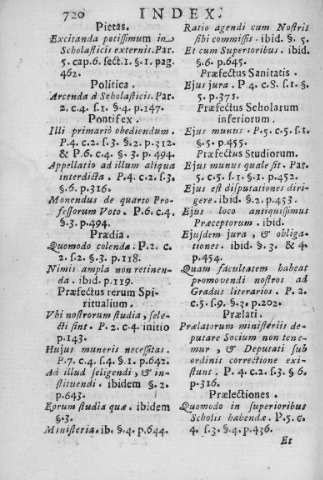 720 INDEX.
Pietas.
Excitanda potissimum in
Scholasticis externis. Par.
5. cap. 6. sect. 1. §. 1. pag.
462.
Politica.
Arcenda à Scholasticis. Par.
2. c. 4. s. 1. §. 4. p. 147.
Pontifex.
Illi primariò obediendum.
P. 4. c. 2. s. 3. §. 2. p. 212.
& P. 6. c. 4. §. 3. p. 494.
Appellatio ad illum aliqua
interdicta. P. 4. c. 2. s. 3.
§. 6. p. 316.
Monendus de quarto Pro-
fessorum Voto. P. 6. c. 4.
§. 3. p. 494.
Prædia.
Quomodo colenda. P. 2. c.
2. s. 2. §. 3. p. 118.
Nimis ampla non retinen-
da. ibid. p. 119.
Præfectus rerum Spi-
ritualium.
Vbi nostrorum studia, sele-
cti sint. P. 2. c. 4. initio
p. 143.
Hujus muneris necessitas.
P. 7. c. 4. s. 4. §. 1. p. 642.
Ad illud seligendi, & in-
stituendi. ibidem §. 2.
p. 643.
Eorum studia quæ. ibidem
§. 3.
Ministeria. ib. §. 4. p. 644.
Ratio agendi cum Nostris
sibi commissis. ibid. §. 5.
Et cum Superioribus. ibid.
§. 6. p. 645.
Præfectus Sanitatis.
Ejus jura. P. 4. c. 8. s. 1. §.
5. p. 371.
Præfectus Scholarum
inferiorum.
Ejus munus. P. 5. c. 5. s. 1.
§. 5. p. 455.
Præfectus Studiorum.
Ejus munus quale sit. Par.
5. c. 5. s. 1. §. 1. p. 452.
Ejus est disputationes diri-
gere. ibid. §. 2. p. 453.
Ejus loco antiquissimus
Præceptorum. ibid.
Ejusdem jura, & obliga-
tiones. ibid. §. 3. & 4.
p. 454.
Quam facultatem habeat
promovendi nostros ad
Gradus literarios. P. 2.
c. 5. s. 9. §. 2. p. 202.
Prælati.
Prælatorum ministeriis de-
putare Socium non tene-
mur, & Deputati sub
ordinis correctione exi-
stunt. P. 4. c. 2. s. 3. §. 6.
p. 316.
Prælectiones.
Quomodo in superioribus
Scholis habendæ. P. 5. c.
4. s. 3. §. 4. p. 436.
Et